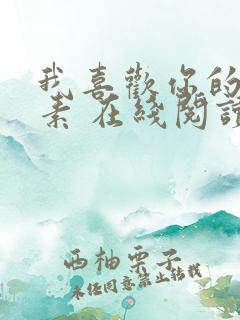 我喜歡你的
素 在綫閱讀
西柚栗子
未经同意禁止转载